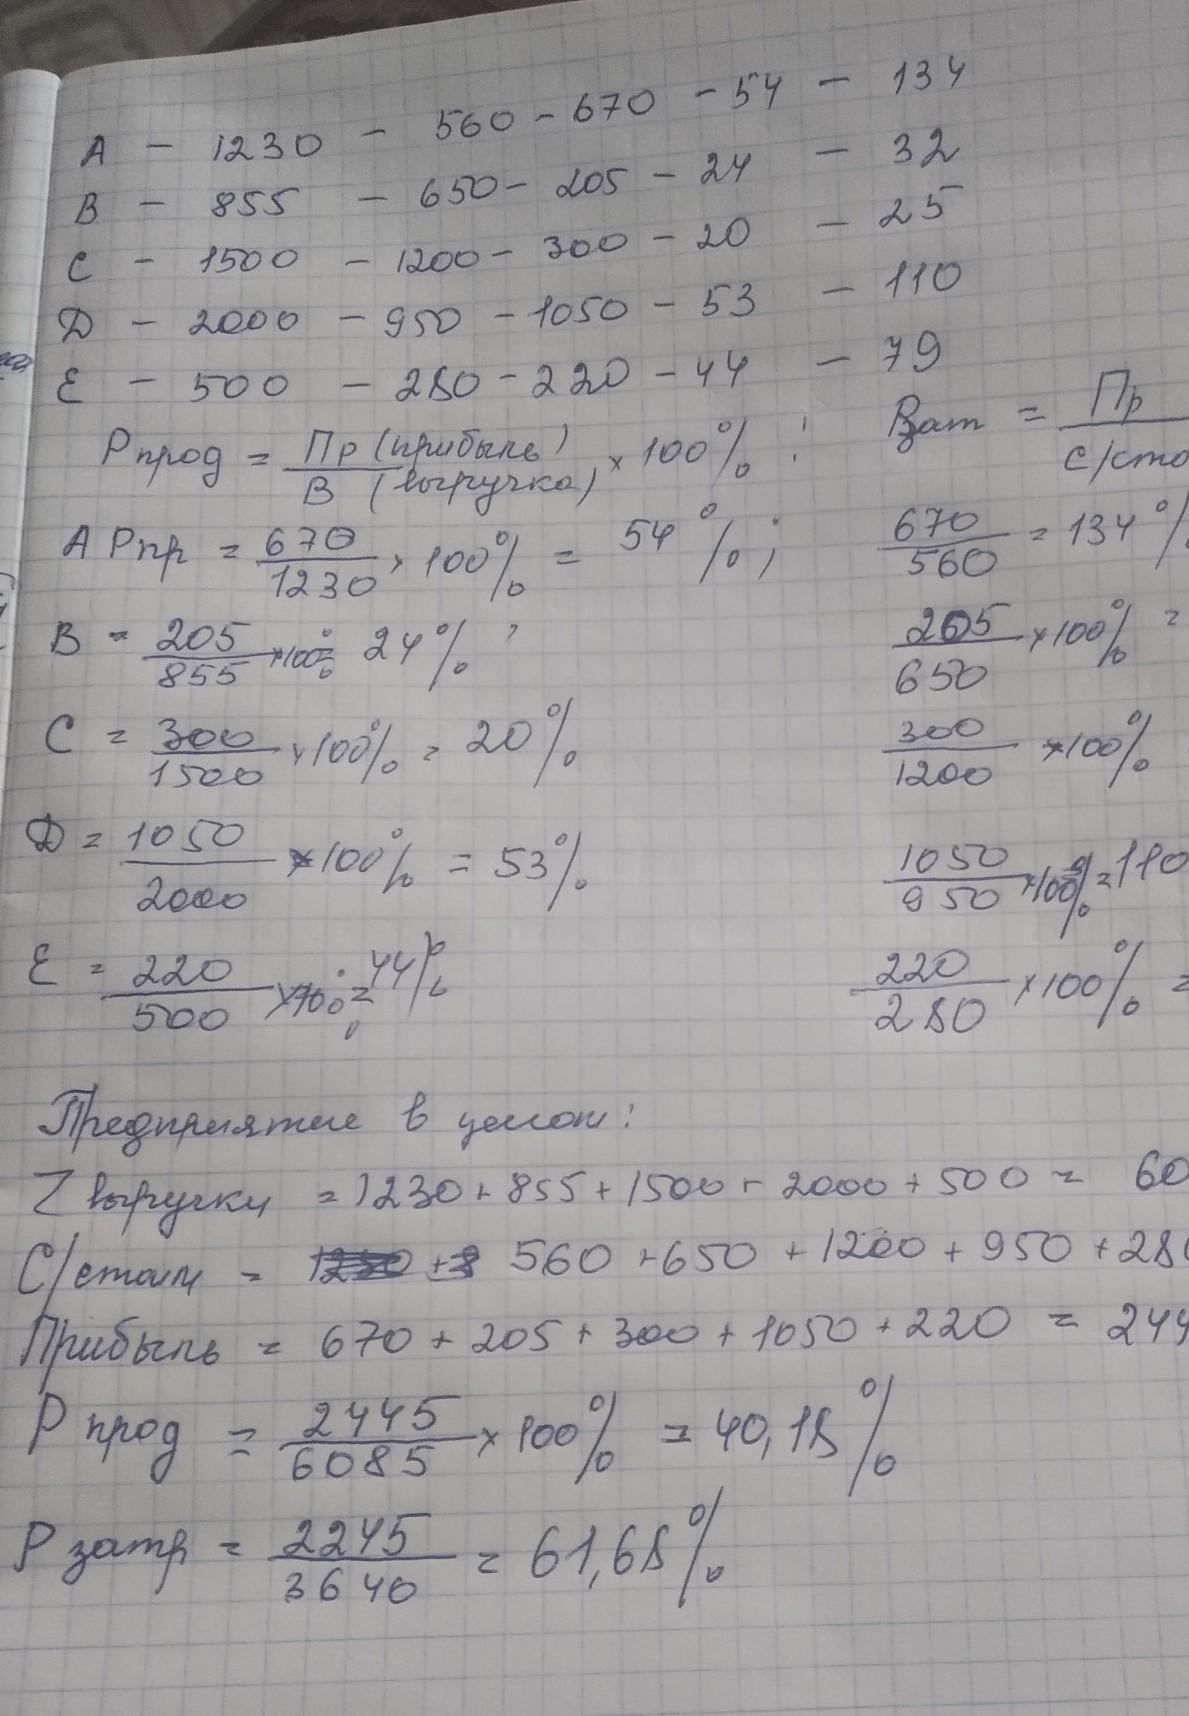 А - 1230 - 560 - 670 - 54 - 134
В - 855 - 650 - 205 - 24 - 32
С - 1500 - 1200 - 300 - 20 - 25
Д - 2000 - 950 - 1050 - 53 - 110
Е - 500 - 280 - 220 - 44 - 79
Рпрод = Пр (прибыль) / В (выручка) × 100% ; Рзат = Пр / с/сто
А Рпр = 670 / 1230 × 100% = 54% ; 670 / 560 = 134%
В = 205 / 855 × 100% = 24% ; 205 / 650 × 100% =
С = 300 / 1500 × 100% = 20% 300 / 1200 × 100%
Д = 1050 / 2000 × 100% = 53% 1050 / 950 × 100% = 110
Е = 220 / 500 × 100% = 44% 220 / 280 × 100% =
Предприятие в целом:
Σ выручки = 1230 + 855 + 1500 + 2000 + 500 = 60
С/стоим = 560 + 650 + 1200 + 950 + 280
Прибыль = 670 + 205 + 300 + 1050 + 220 = 244
Р прод = 2445 / 6085 × 100% = 40,18%
Р затр = 2245 / 3640 = 61,68%